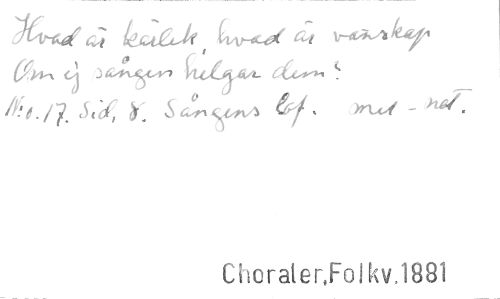 Hvad är kärlek, hvad är vänskap
Om ej sången helgar dem?
No. 17. Sid. 8. Sångens Lof. mel - not.
Choraler,Folkv,1881